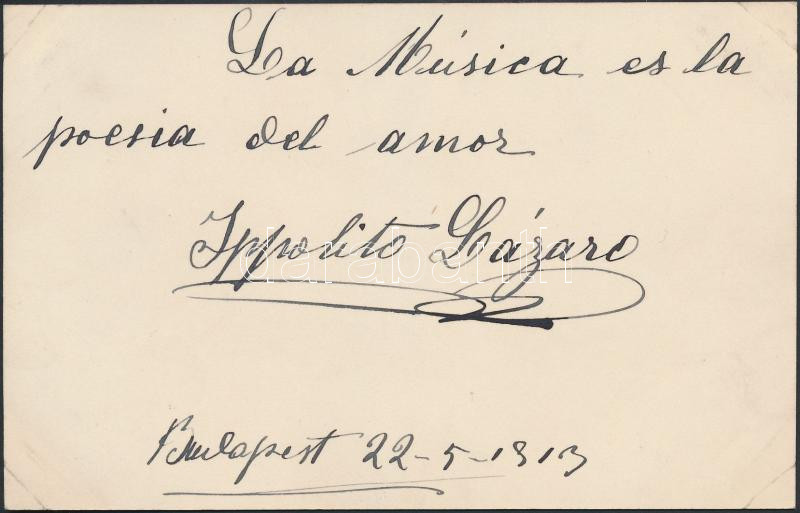 La Música es la
poesia del amor
Ippolito Lázaro
darabanth
Budapest 22-5-1913